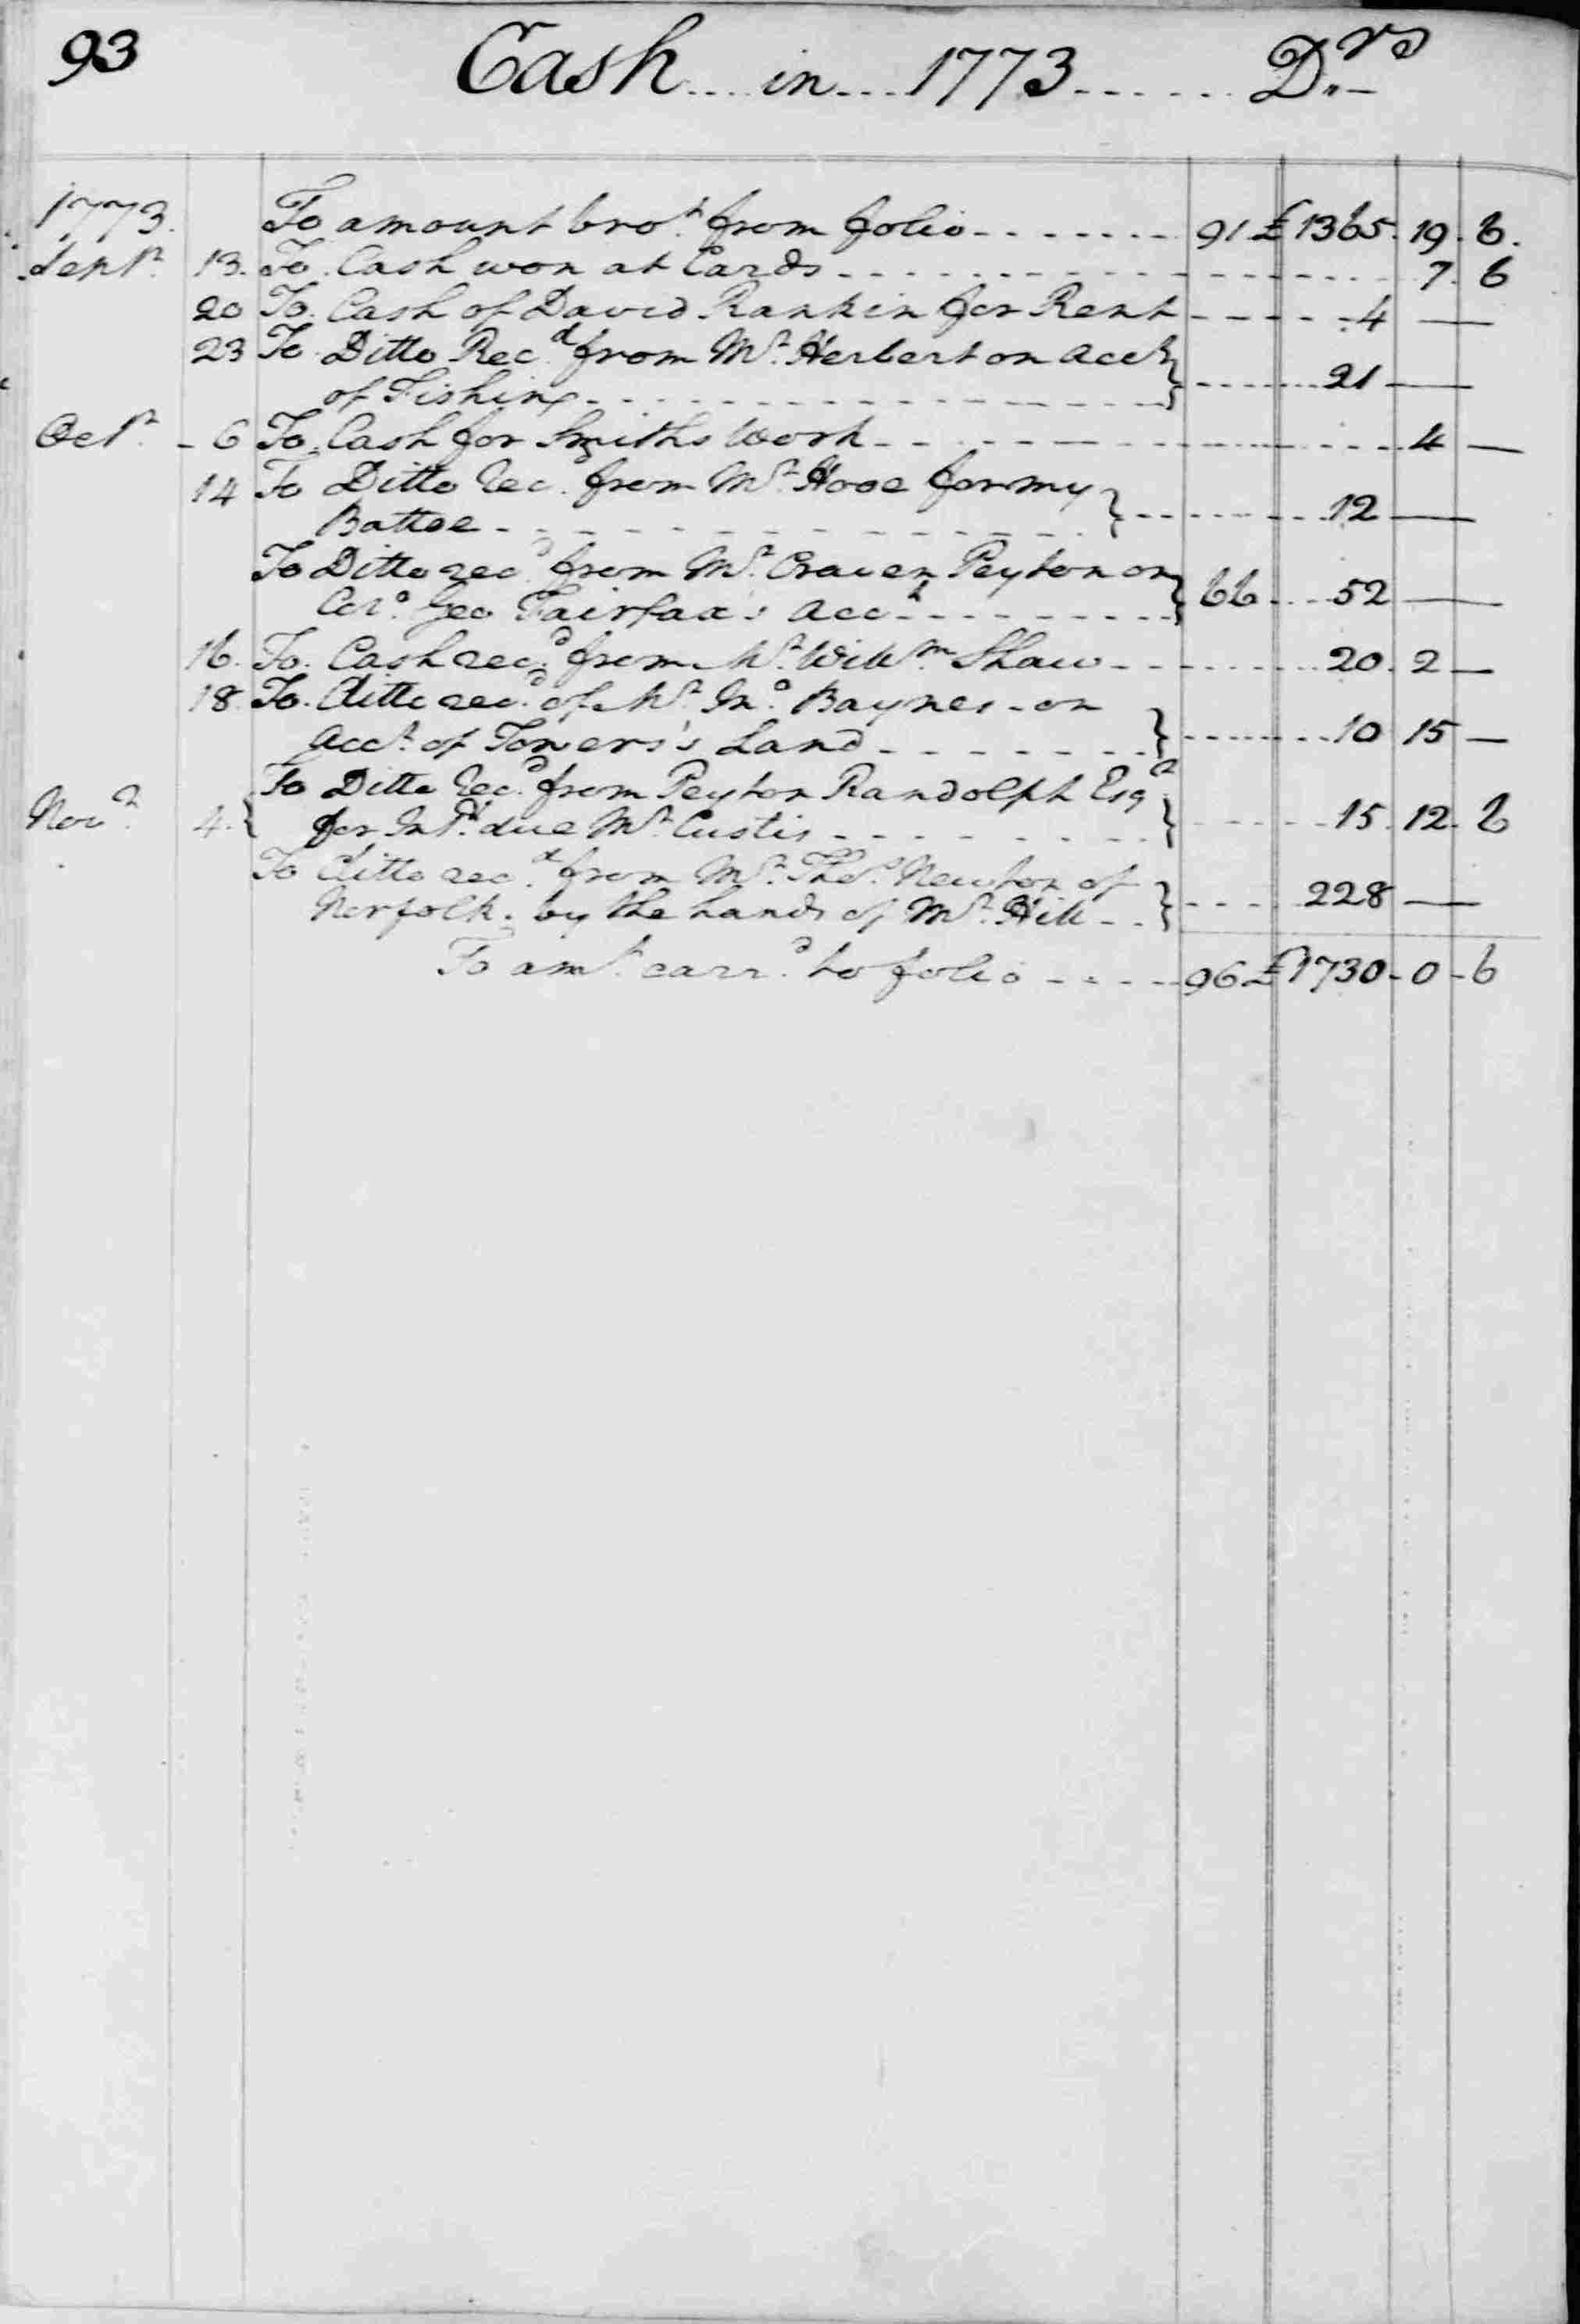 93 Cash in 1773 Drs
1773. To amount brot. from folio 91 £1365. 19. 6.
Septr. 13. To Cash won at Cards 7. 6
20 To Cash of David Rankin for Rent 4 —
23 To Ditto Recd. from Mr. Herbert on Acct.
of Fishing 21 —
Octr. 6 To Cash for Smiths Work 4 —
14 To Ditto Rec. from Mr. Hooe for my
Battoe 12 —
To Ditto recd. from Mr. Craven Peyton on
Colo. Geo Fairfax's Acct. 66 52 —
16. To Cash recd. from Mr. Willm. Shaw 20. 2 —
18. To ditto recd. of Mr. Jno. Baynes on
Acct. of Towers's Land 10 15 —
To Ditto Recd. from Peyton Randolph Esqr.
Novr. 4. for Intt. due Mr. Custis 15. 12. 6
To ditto recd. from Mr. Thos. Newton of
Norfolk. by the hands of Mr. Hill 228 —
To amt. carrd. to folio 96 £1730 - 0 - 6